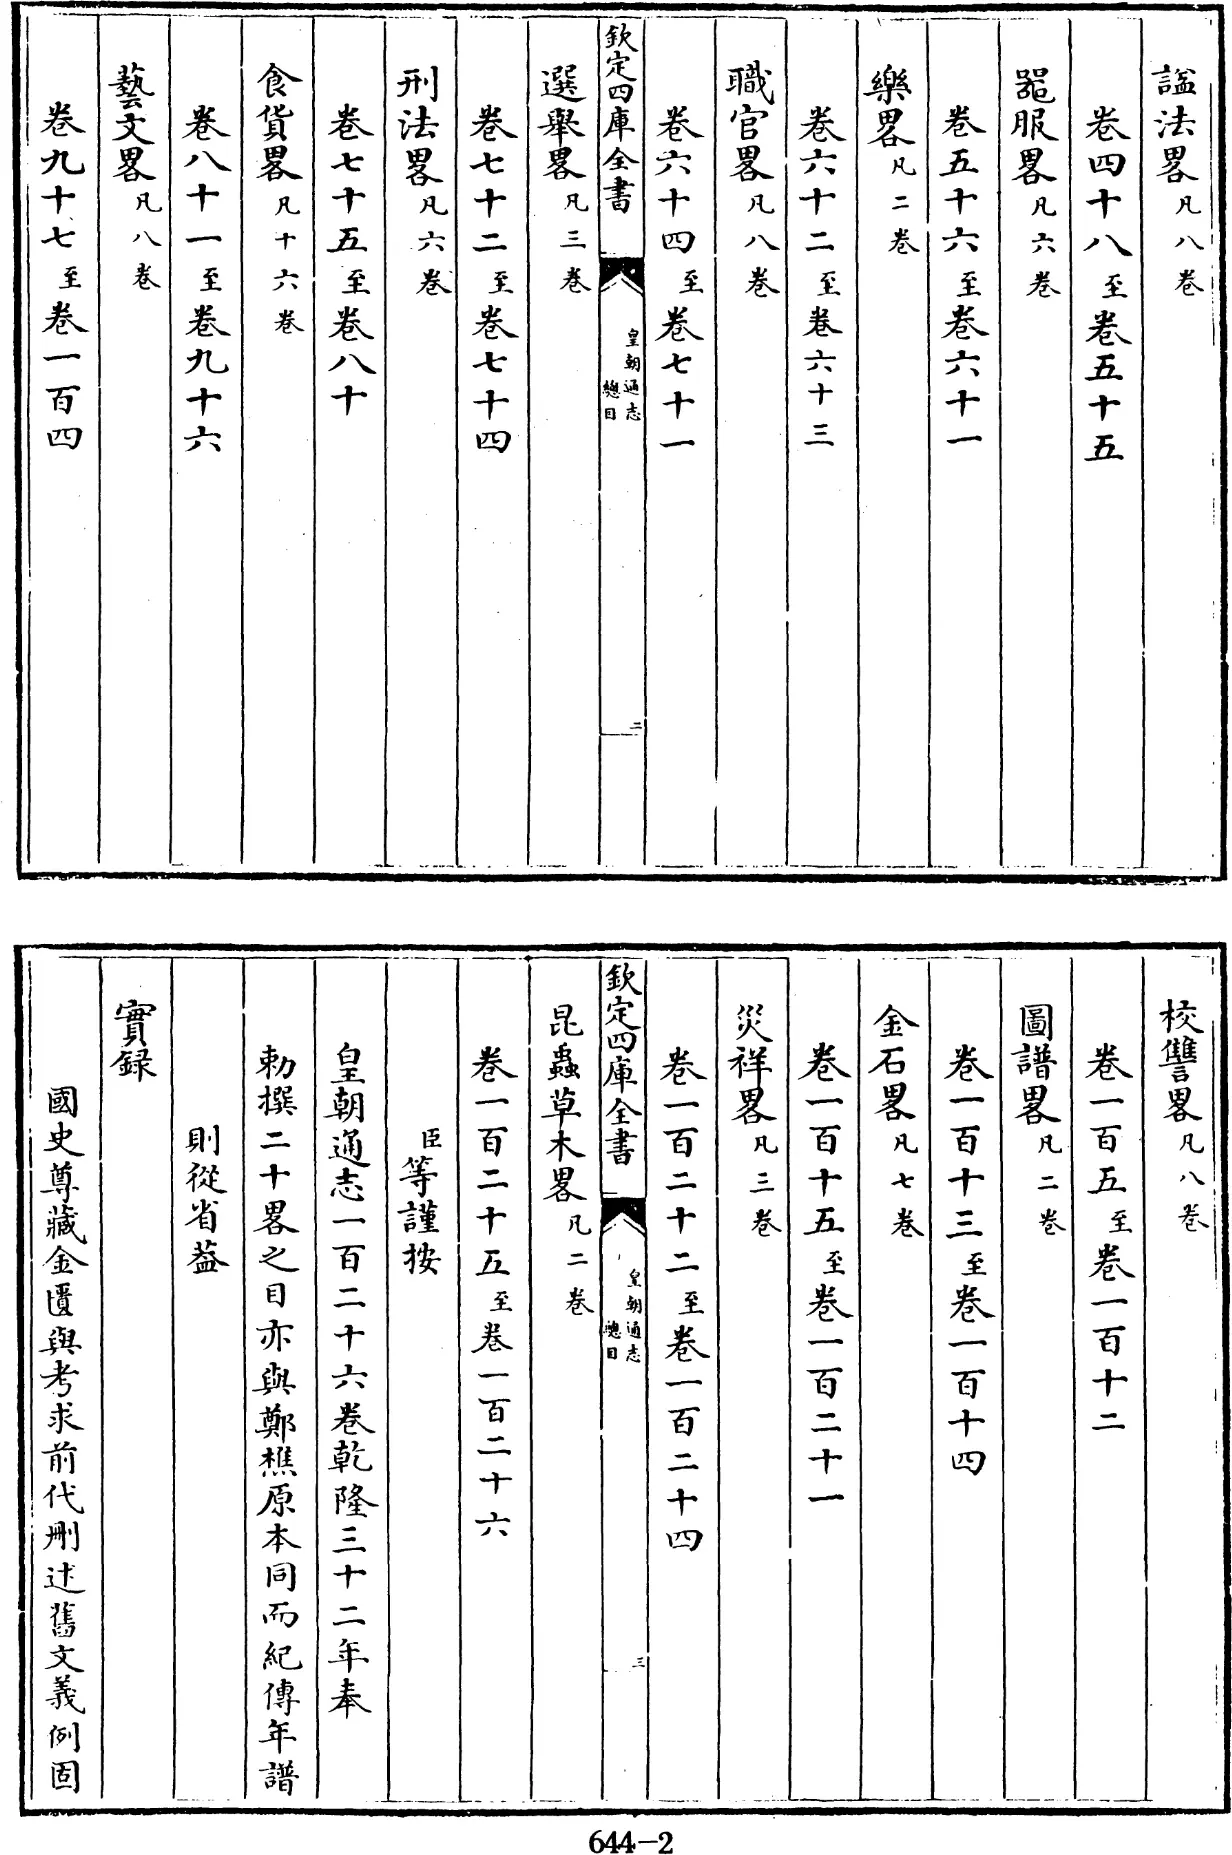 諡法畧凡八卷
卷四十八至卷五十五
器服畧凡六卷
卷五十六至卷六十一
樂畧凡二卷
卷六十二至卷六十三
職官畧凡八卷
卷六十四至卷七十一
欽定四庫全書
皇朝通志
總目
二
選舉畧凡三卷
卷七十二至卷七十四
刑法畧凡六卷
卷七十五至卷八十
食貨畧凡十六卷
卷八十一至卷九十六
藝文畧凡八卷
卷九十七至卷一百四
校讐畧凡八卷
卷一百五至卷一百十二
圖譜畧凡二卷
卷一百十三至卷一百十四
金石畧凡七卷
卷一百十五至卷一百二十一
災祥畧凡三卷
卷一百二十二至卷一百二十四
欽定四庫全書
皇朝通志
總目
三
昆蟲草木畧凡二卷
卷一百二十五至卷一百二十六
臣等謹按
皇朝通志一百二十六卷乾隆三十二年奉
勅撰二十畧之目亦與鄭樵原本同而紀傳年譜
則從省葢
實録
國史尊藏金匱與考求前代刪述舊文義例固
644-2